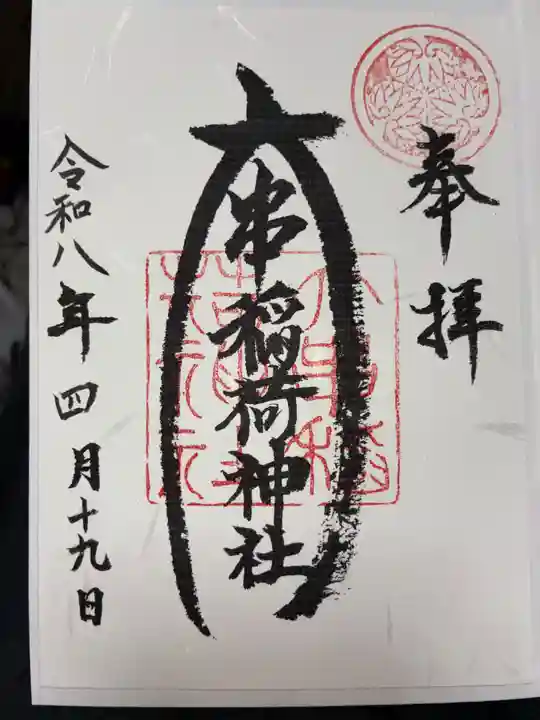 奉拝
六串稲荷神社
令和八年四月十九日